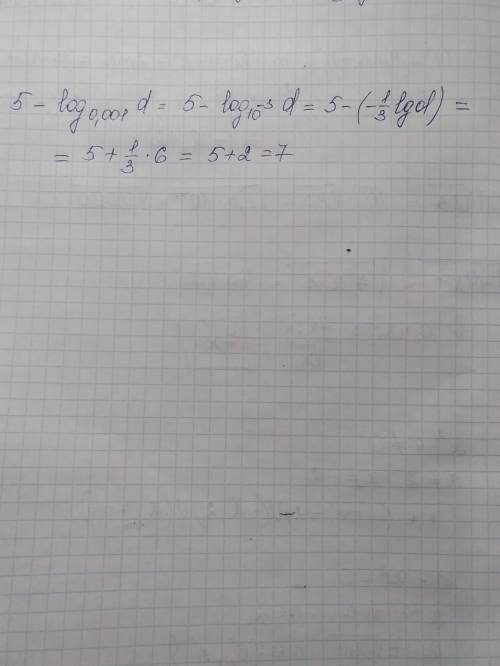 5 - log₀,₀₀₁ d = 5 - log₁₀⁻³ d = 5 - (-1/3 lg d) =
= 5 + 1/3 · 6 = 5 + 2 = 7